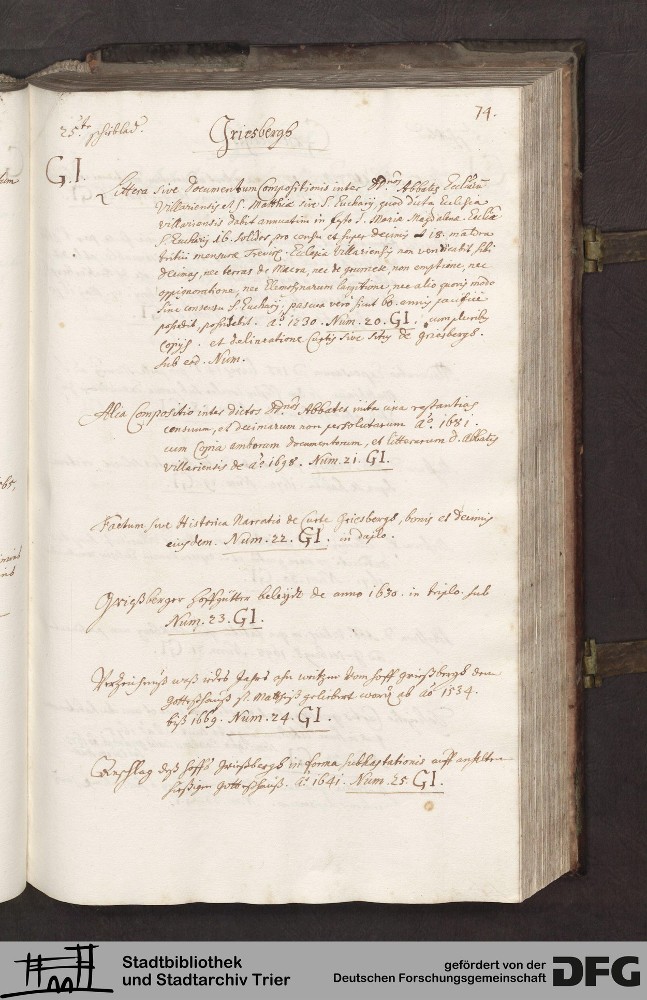 74.
25.te schiblad.
Griesbergs
G.I.
Littera sive documentum Compositionis inter DDnos Abbates Ecclarum
Villariensis et S. Matthiæ sive S. Eucharij quod dicta Ecclesia
villariensis dabit annuatim in festo S. Mariæ Magdalenæ Eccliæ
S. Eucharij 16. solidos, pro censu et super decimis 18. maldra
tritici mensuræ Treviris. Ecclesia Villariensis non vendicabit sibi
decimas, nec terras de Macra, nec de non emptione, nec
oppignoratione, nec Elemosynarum largitione, nec alio quovis modo
sine consensu S. Eucharij, pascua verò sicut pacificè
possedit, possidebit. Ao. 1230. Num. 20. GI. cum pluribus
Copijs. et delineatione Curtis sive sitûs de griesbergs.
sub eod. Num.
Alia Compositio inter dictos DDnos Abbates inita circa restantias
censuum, et decimarum non persolutarum Ao. 1681.
cum Copia amborum documentorum, et litterarum D. Abbatis
Villariensis de ao. 1698. Num. 21. GI.
Factum sive Historica Narratio de Curte Griesbergs, bonis et decimis
eiusdem. Num. 22. GI. in duplo.
Grießberger hoffgütter beleydt de anno 1630. in triplo. sub
Num. 23. GI.
Verzeichnuß waß jedes Jahrs ahn weitzen vom hoff grießbergs dem
gotteßhauß St. Matheiß gelibert worden ab ao. 1534.
biß 1669. Num. 24. GI.
Anschlag deß hoffs grießbergs in forma subhastationis auff anhalten
hießigen gotteßhauß. Ao. 1641. Num. 25. GI.
Stadtbibliothek
und Stadtarchiv Trier
gefördert von der
Deutschen Forschungsgemeinschaft
DFG